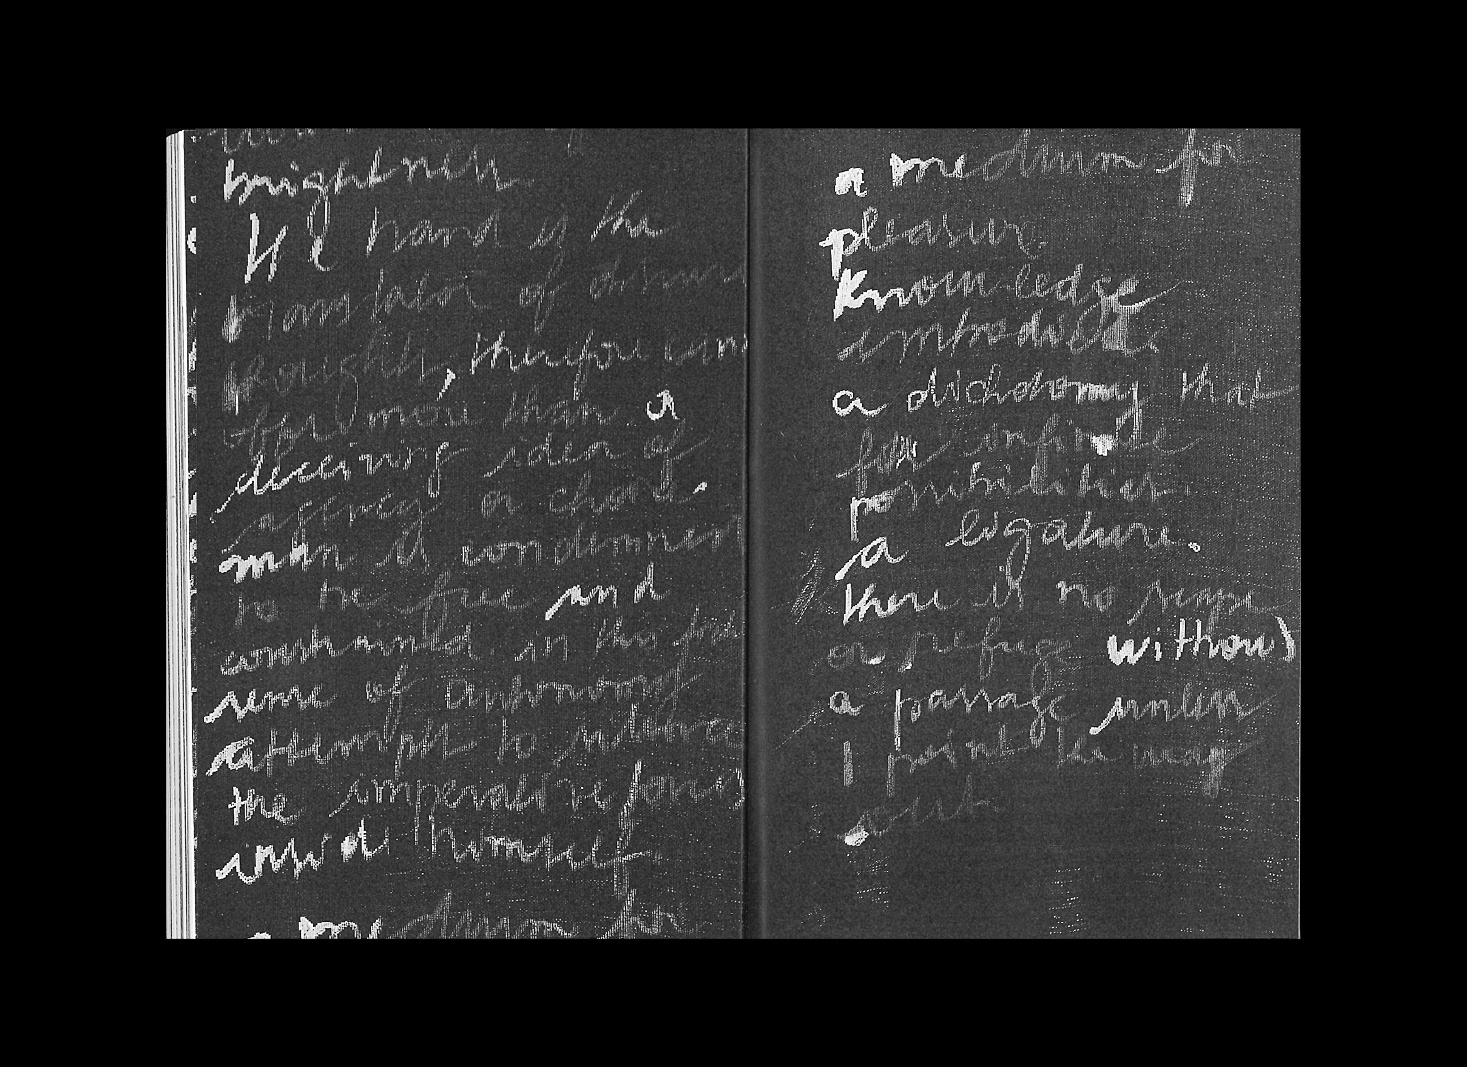 brightness
the hand is the
translator of
thought, therefore
more than a
deceiving idea of
agency or chord.
man is condemned
to be free and
constrained in this
sense of autonomy
attempts to
the imperative
inside himself.
a medium for
a medium for
pleasure
knowledge
embodies
a dichotomy that
for infinite
possibilities.
a ligature.
there is no
or refuge without
a passage unless
I point the way
out